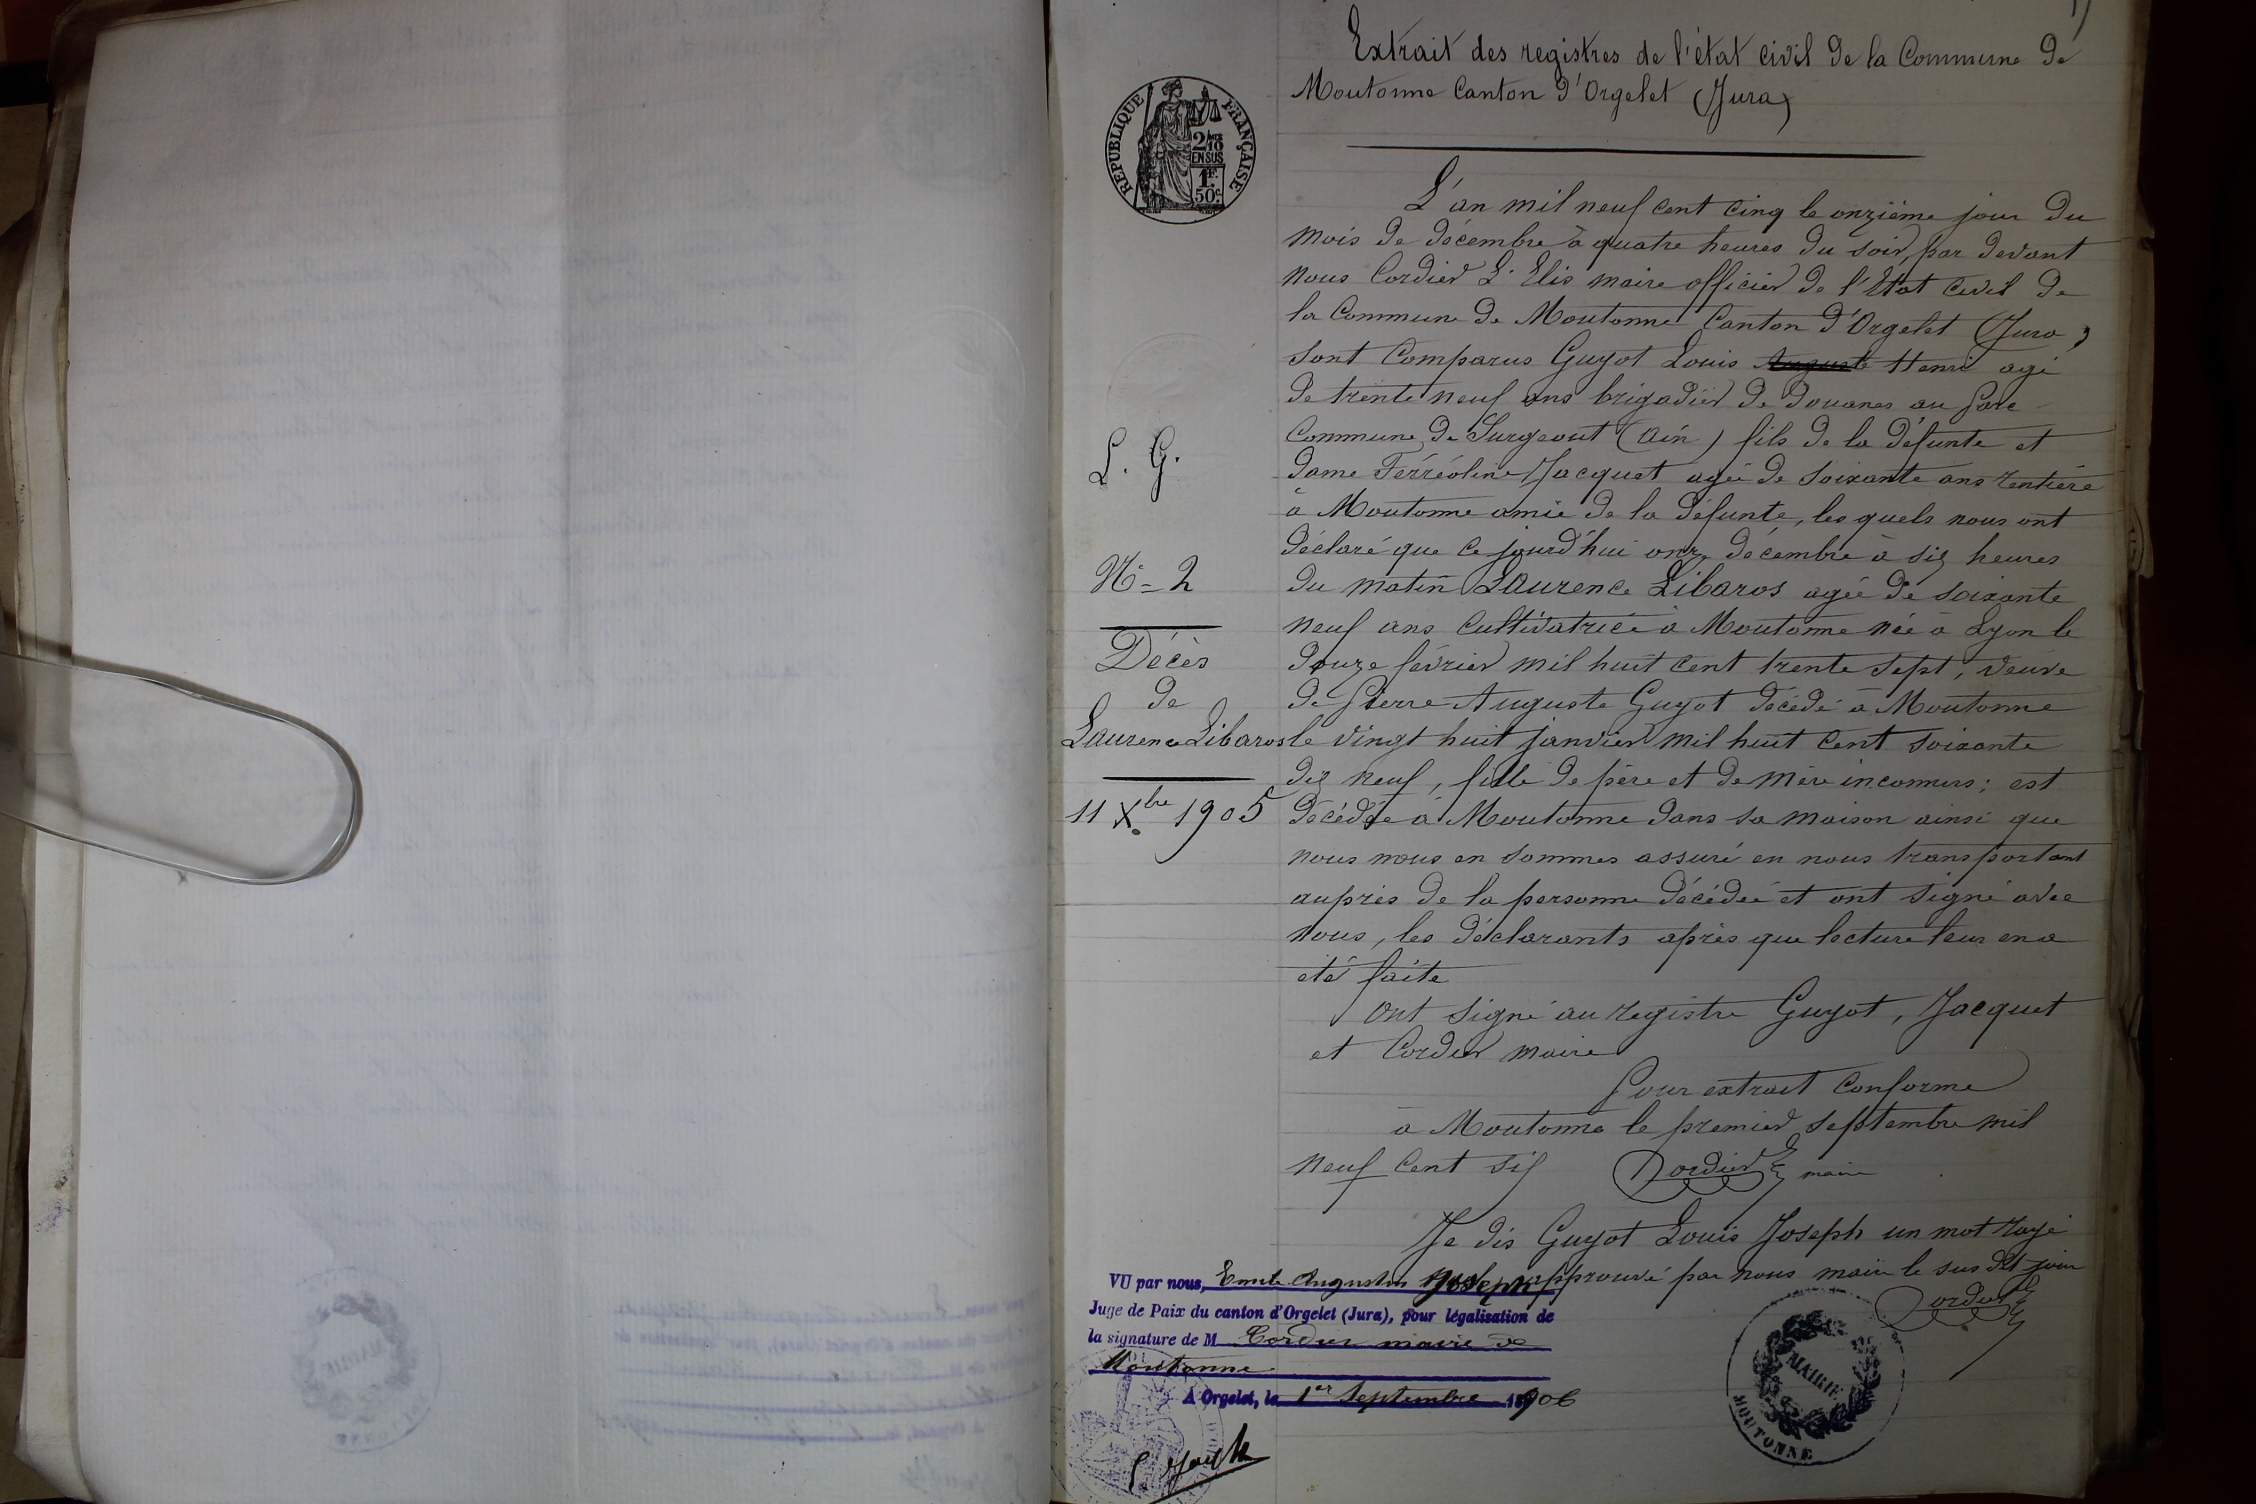 Extrait des registres de l'état civil de la Commune de
Moutonne Canton d'Orgelet (Jura)
RÉPUBLIQUE FRANÇAISE
2/10
EN SUS
1F.
50c.
L'an mil neuf cent cinq le onzième jour du
mois de décembre à quatre heures du soir, par devant
nous Cordier L. Elis maire officier de l'Etat civil de
la Commune de Moutonne Canton d'Orgelet (Jura)
sont comparus Guyot Louis Auguste Henri agé
de trente neuf ans brigadier de Douanes au
Commune de Surgeout (Ain) fils de la défunte et
L. G.
dame Ferréoline Jacquet agée de soixante ans rentière
à Moutonne amie de la défunte, les quels nous ont
déclaré que ce jourd'hui onze décembre à six heures
N° = 2
du matin Laurence Libaros agée de soixante
neuf ans cultivatrice à Moutonne née à Lyon le
Décès
douze février mil huit cent trente sept, veuve
de
de Pierre Auguste Guyot décédé à Moutonne
Laurence Libaros
le vingt huit janvier mil huit cent soixante
dix neuf, fille de père et de mère inconnus; est
11 Xbre 1905
décédée à Moutonne dans sa maison ainsi que
nous nous en sommes assuré en nous transportant
auprès de la personne décédée et ont signé avec
nous, les déclarants après que lecture leur en a
été faite
Ont signé au registre Guyot, Jacquet
et Cordier maire
Pour extrait conforme
à Moutonne le premier septembre mil
neuf cent six Cordier maire
Je dis Guyot Louis Joseph un mot rayé
approuvé par nous maire le sus dit jour
Cordier
VU par nous, Emile Augustin Joseph
Juge de Paix du canton d'Orgelet (Jura), pour légalisation de
la signature de M Cordier maire de
Moutonne
A Orgelet, le 1er Septembre 1906
MAIRIE
MOUTONNE